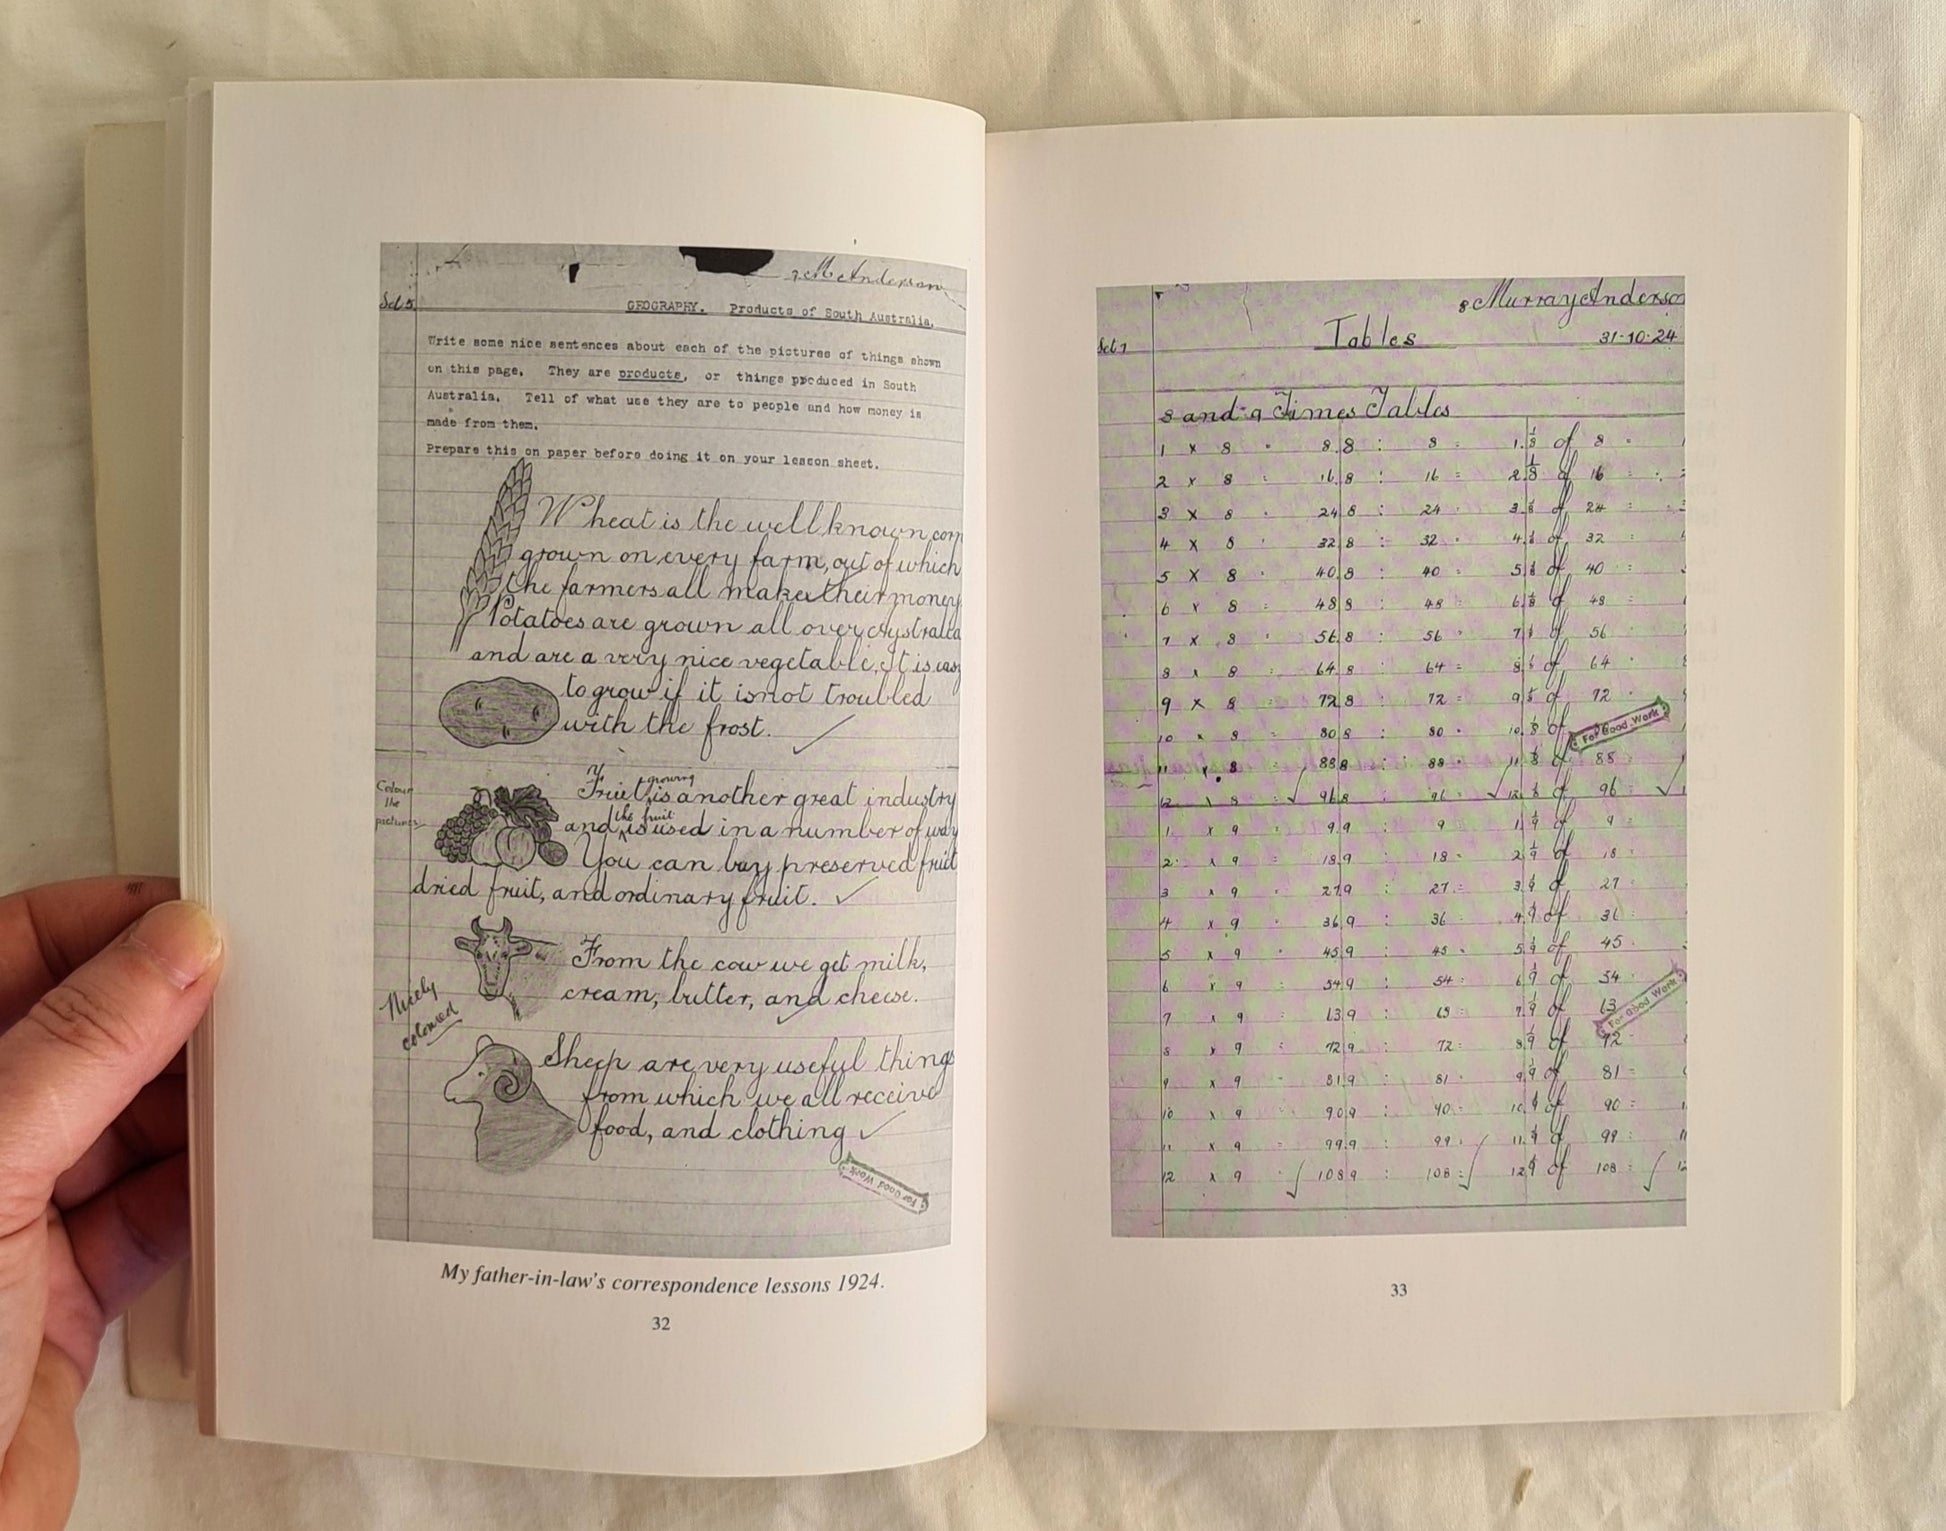 M Anderson
Set 5
GEOGRAPHY. Products of South Australia.
Write some nice sentences about each of the pictures of things shown
on this page. They are products, or things produced in South
Australia. Tell of what use they are to people and how money is
made from them.
Prepare this on paper before doing it on your lesson sheet.
Wheat is the well known corn
grown on every farm, out of which
the farmers all make their money
Potatoes are grown all over Australia
and are a very nice vegetable, It is easy
to grow if it is not troubled
with the frost.
Colour
the
pictures
growing
Fruit is another great industry
the fruit
and is used in a number of way
You can buy preserved fruit
dried fruit, and ordinary fruit.
From the cow we get milk,
cream, butter, and cheese.
Nicely
coloured
Sheep are very useful things
from which we all receive
food, and clothing
For Good Work
My father-in-law's correspondence lessons 1924.
32
8 Murray Anderson
Set 7
Tables
31-10-24
8 and 9 Times Tables
1 x 8 = 8 8 : 8 = 1 1/8 of 8 =
2 x 8 = 16 8 : 16 = 2 1/8 of 16 =
3 x 8 = 24 8 : 24 = 3 1/8 of 24 =
4 x 8 = 32 8 : 32 = 4 1/8 of 32 =
5 x 8 = 40 8 : 40 = 5 1/8 of 40 =
6 x 8 = 48 8 : 48 = 6 1/8 of 48 =
7 x 8 = 56 8 : 56 = 7 1/8 of 56
8 x 8 = 64 8 : 64 = 8 1/8 of 64
9 x 8 = 72 8 : 72 = 9 1/8 of 72
10 x 8 = 80 8 : 80 = 10 1/8 of
For Good Work
11 x 8 = 88 8 : 88 = 11 1/8 of 88
12 x 8 = 96 8 : 96 = 12 1/8 of 96 =
1 x 9 = 9 9 : 9 = 1 1/9 of 9 =
2 x 9 = 18 9 : 18 = 2 1/9 of 18 =
3 x 9 = 27 9 : 27 = 3 1/9 of 27
4 x 9 = 36 9 : 36 = 4 1/9 of 36
5 x 9 = 45 9 : 45 = 5 1/9 of 45
6 x 9 = 54 9 : 54 = 6 1/9 of 54
7 x 9 = 63 9 : 63 = 7 1/9 of 63
For Good Work
8 x 9 = 72 9 : 72 = 8 1/9 of 72
9 x 9 = 81 9 : 81 = 9 1/9 of 81 =
10 x 9 = 90 9 : 90 = 10 1/9 of 90 =
11 x 9 = 99 9 : 99 = 11 1/9 of 99 = 11
12 x 9 = 108 9 : 108 = 12 1/9 of 108 = 12
33